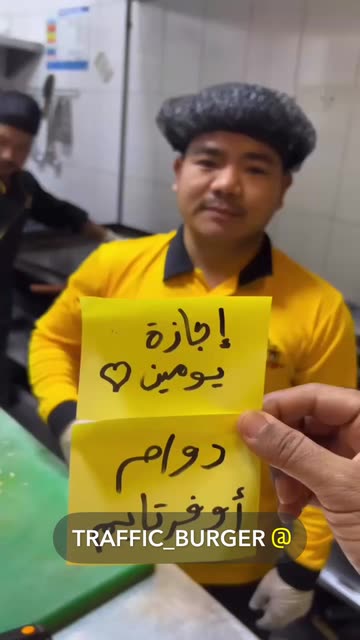 إجازة
يومين ♡
دوام
أوفرتايم
TRAFFIC_BURGER @